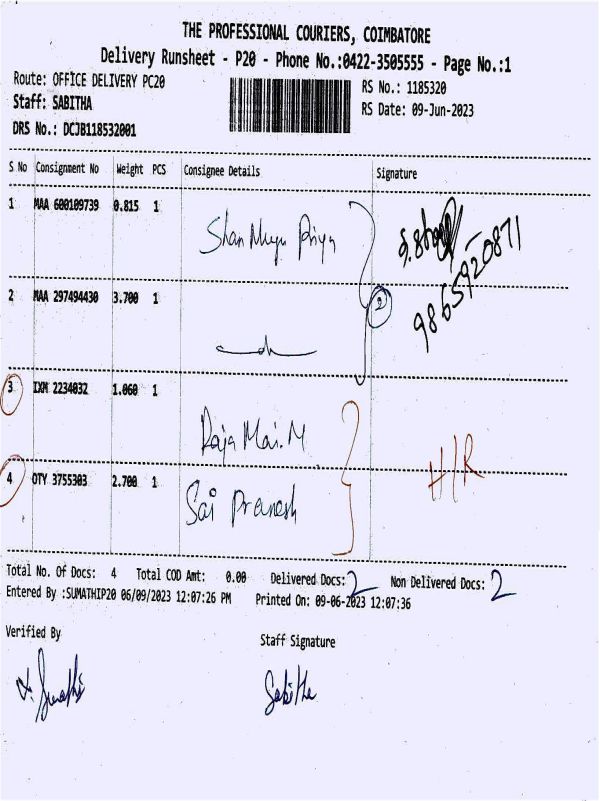 THE PROFESSIONAL COURIERS, COIMBATORE
Delivery Runsheet - P20 - Phone No.:0422-3505555 - Page No.:1
Route: OFFICE DELIVERY PC20
RS No.: 1185320
Staff: SABITHA
RS Date: 09-Jun-2023
DRS No.: DCJB118532001
S No Consignment No Weight PCS Consignee Details Signature
1 MAA 600109739 0.815 1
Shan Muga Priya
9865920871
2 MAA 297494430 3.700 1
2
3 IXM 2234032 1.060 1
Raja Mai. M
H/R
4 OTY 3755303 2.700 1
Sai Pranesh
Total No. Of Docs: 4 Total COD Amt: 0.00 Delivered Docs: 2 Non Delivered Docs: 2
Entered By :SUMATHIP20 06/09/2023 12:07:26 PM Printed On: 09-06-2023 12:07:36
Verified By Staff Signature
Sabitha